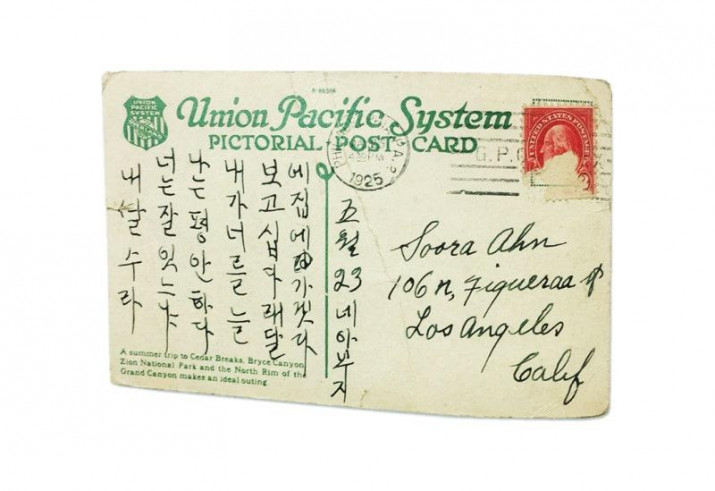 P-69359
UNION PACIFIC SYSTEM
Union Pacific System
PICTORIAL POST CARD
UNITED STATES POSTAGE
PM
1925
내달수라
너는잘잇느냐
나는평안하다
내가너를늘
보고십다래달
에집에가겟다
五월23네아부지
Soora Ahn
106 N, Figueroa
Los Angeles
Calif
A summer trip to Cedar Breaks, Bryce Canyon,
Zion National Park and the North Rim of the
Grand Canyon makes an ideal outing.